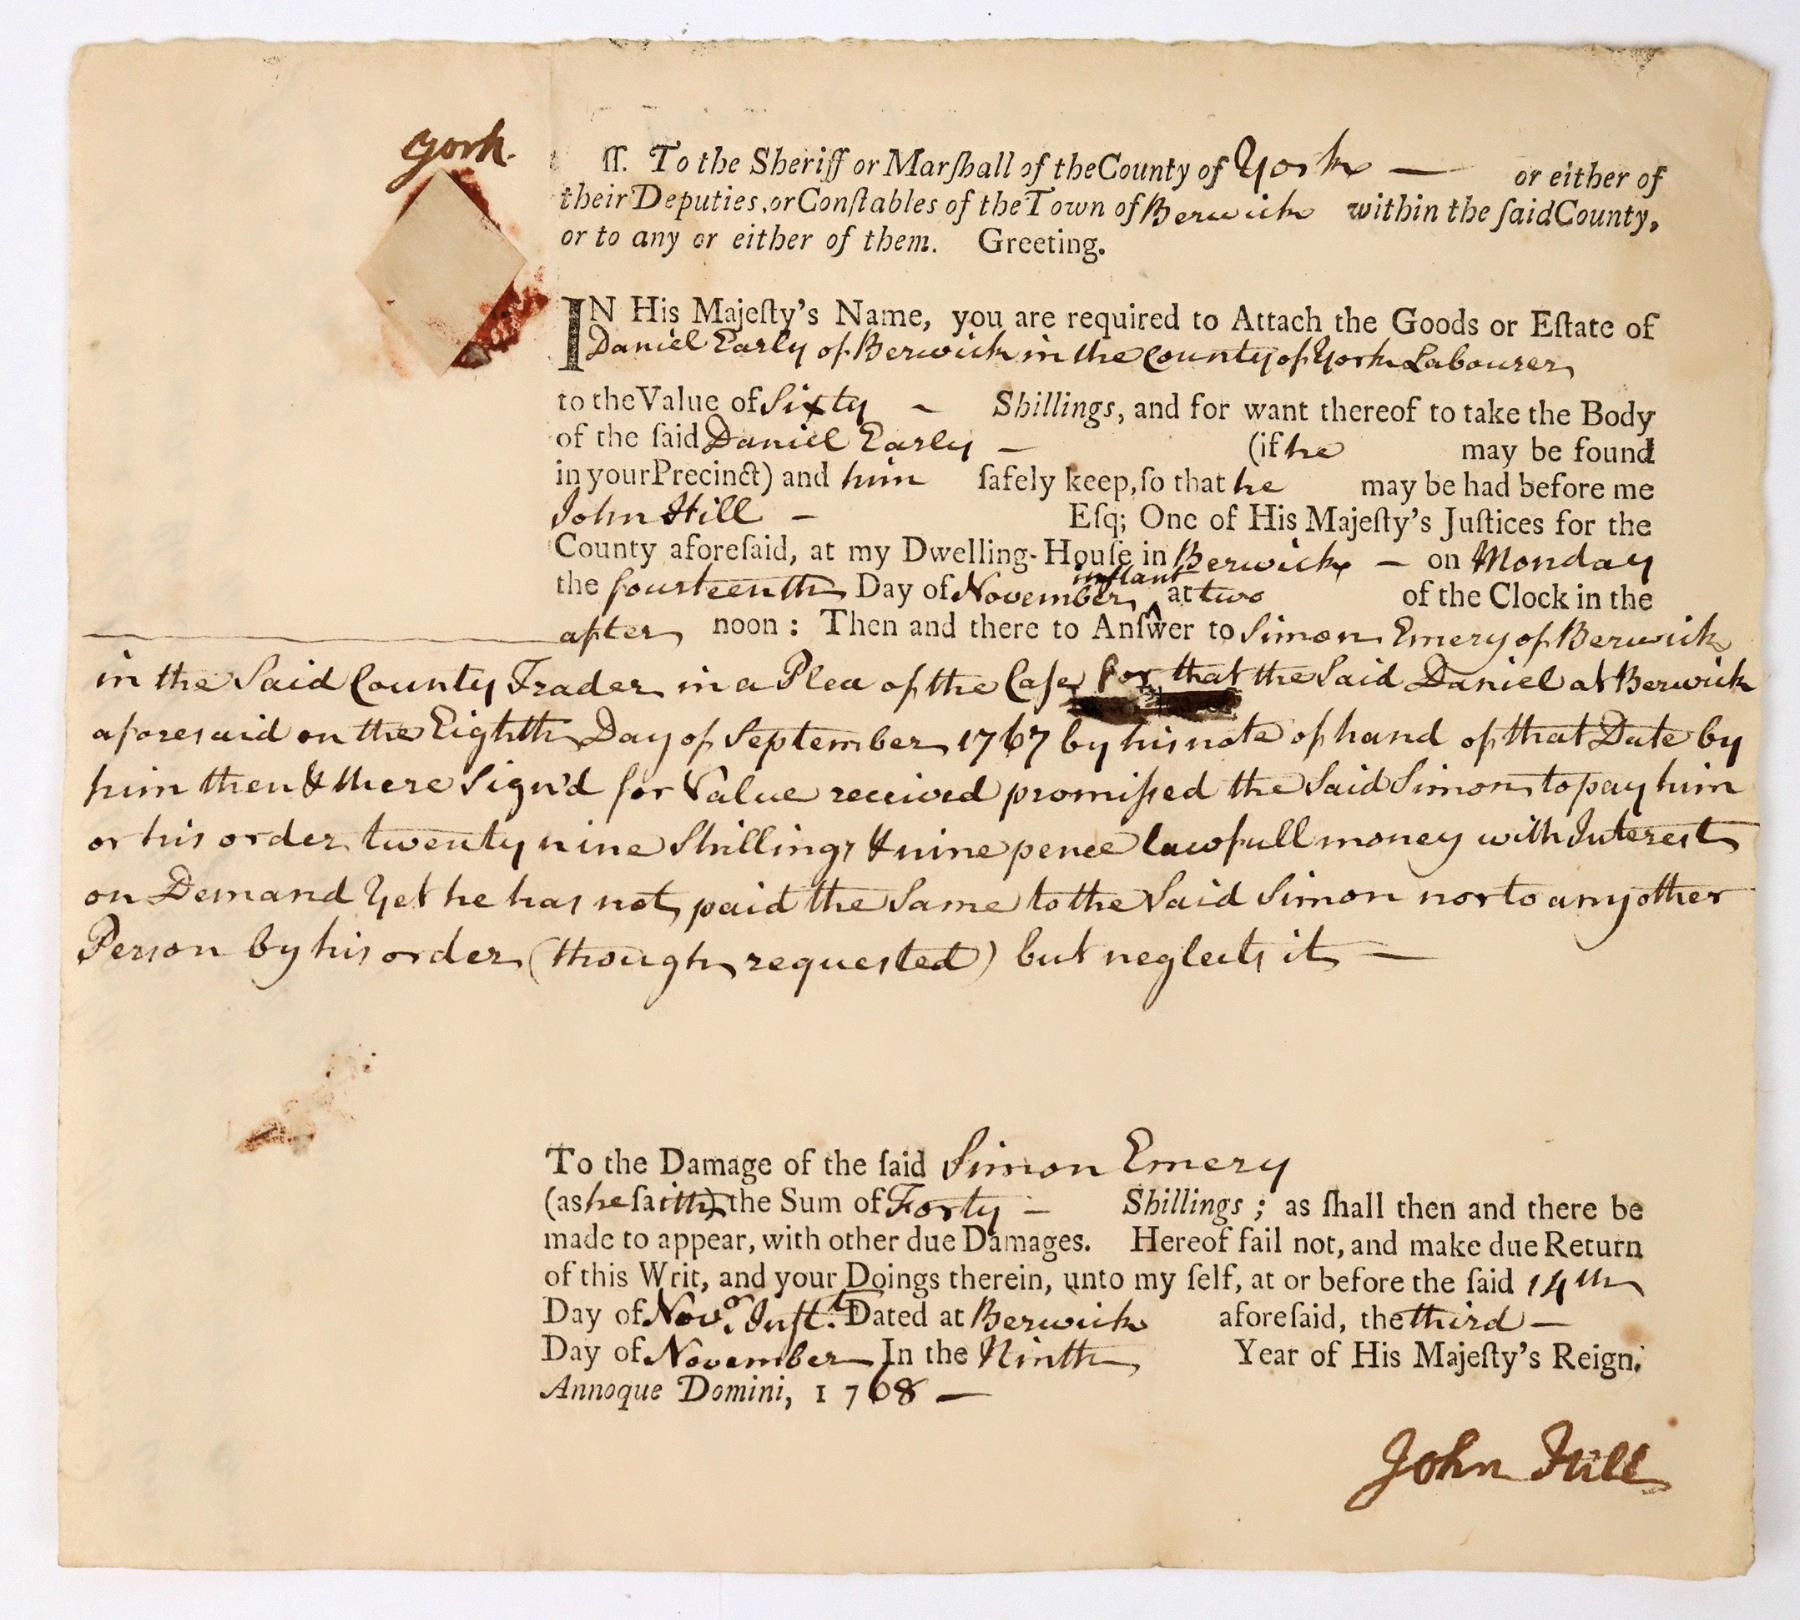 York.
ſſ. To the Sheriff or Marſhall of the County of York — or either of
their Deputies, or Conſtables of the Town of Berwick within the ſaid County,
or to any or either of them. Greeting.
IN His Majeſty's Name, you are required to Attach the Goods or Eſtate of
Daniel Early of Berwick in the County of York Labourer
to the Value of Sixty – Shillings, and for want thereof to take the Body
of the ſaid Daniel Early – (if he may be found
in your Precinct) and him ſafely keep, ſo that he may be had before me
John Hill – Eſq; One of His Majeſty's Juſtices for the
County aforeſaid, at my Dwelling-Houſe in Berwick – on Monday
the fourteenth Day of November inſtant at two of the Clock in the
after noon: Then and there to Anſwer to Simon Emery of Berwick
in the Said County Trader in a Plea of the Caſe for that the Said Daniel at Berwick
aforesaid on the Eighth Day of September 1767 by his note of hand of that Date by
him then & there Sign'd for Value received promiſsed the Said Simon to pay him
or his order twenty nine Shillings & nine pence lawfull money with Interest
on Demand Yet he has not paid the Same to the Said Simon nor to any other
Person by his order (though requested) but neglects it —
To the Damage of the ſaid Simon Emery
(as he ſaith) the Sum of Forty – Shillings; as ſhall then and there be
made to appear, with other due Damages. Hereof fail not, and make due Return
of this Writ, and your Doings therein, unto my ſelf, at or before the ſaid 14th
Day of Novr. Inſt. Dated at Berwick aforeſaid, the third —
Day of November In the Ninth Year of His Majeſty's Reign.
Annoque Domini, 1768 —
John Hill